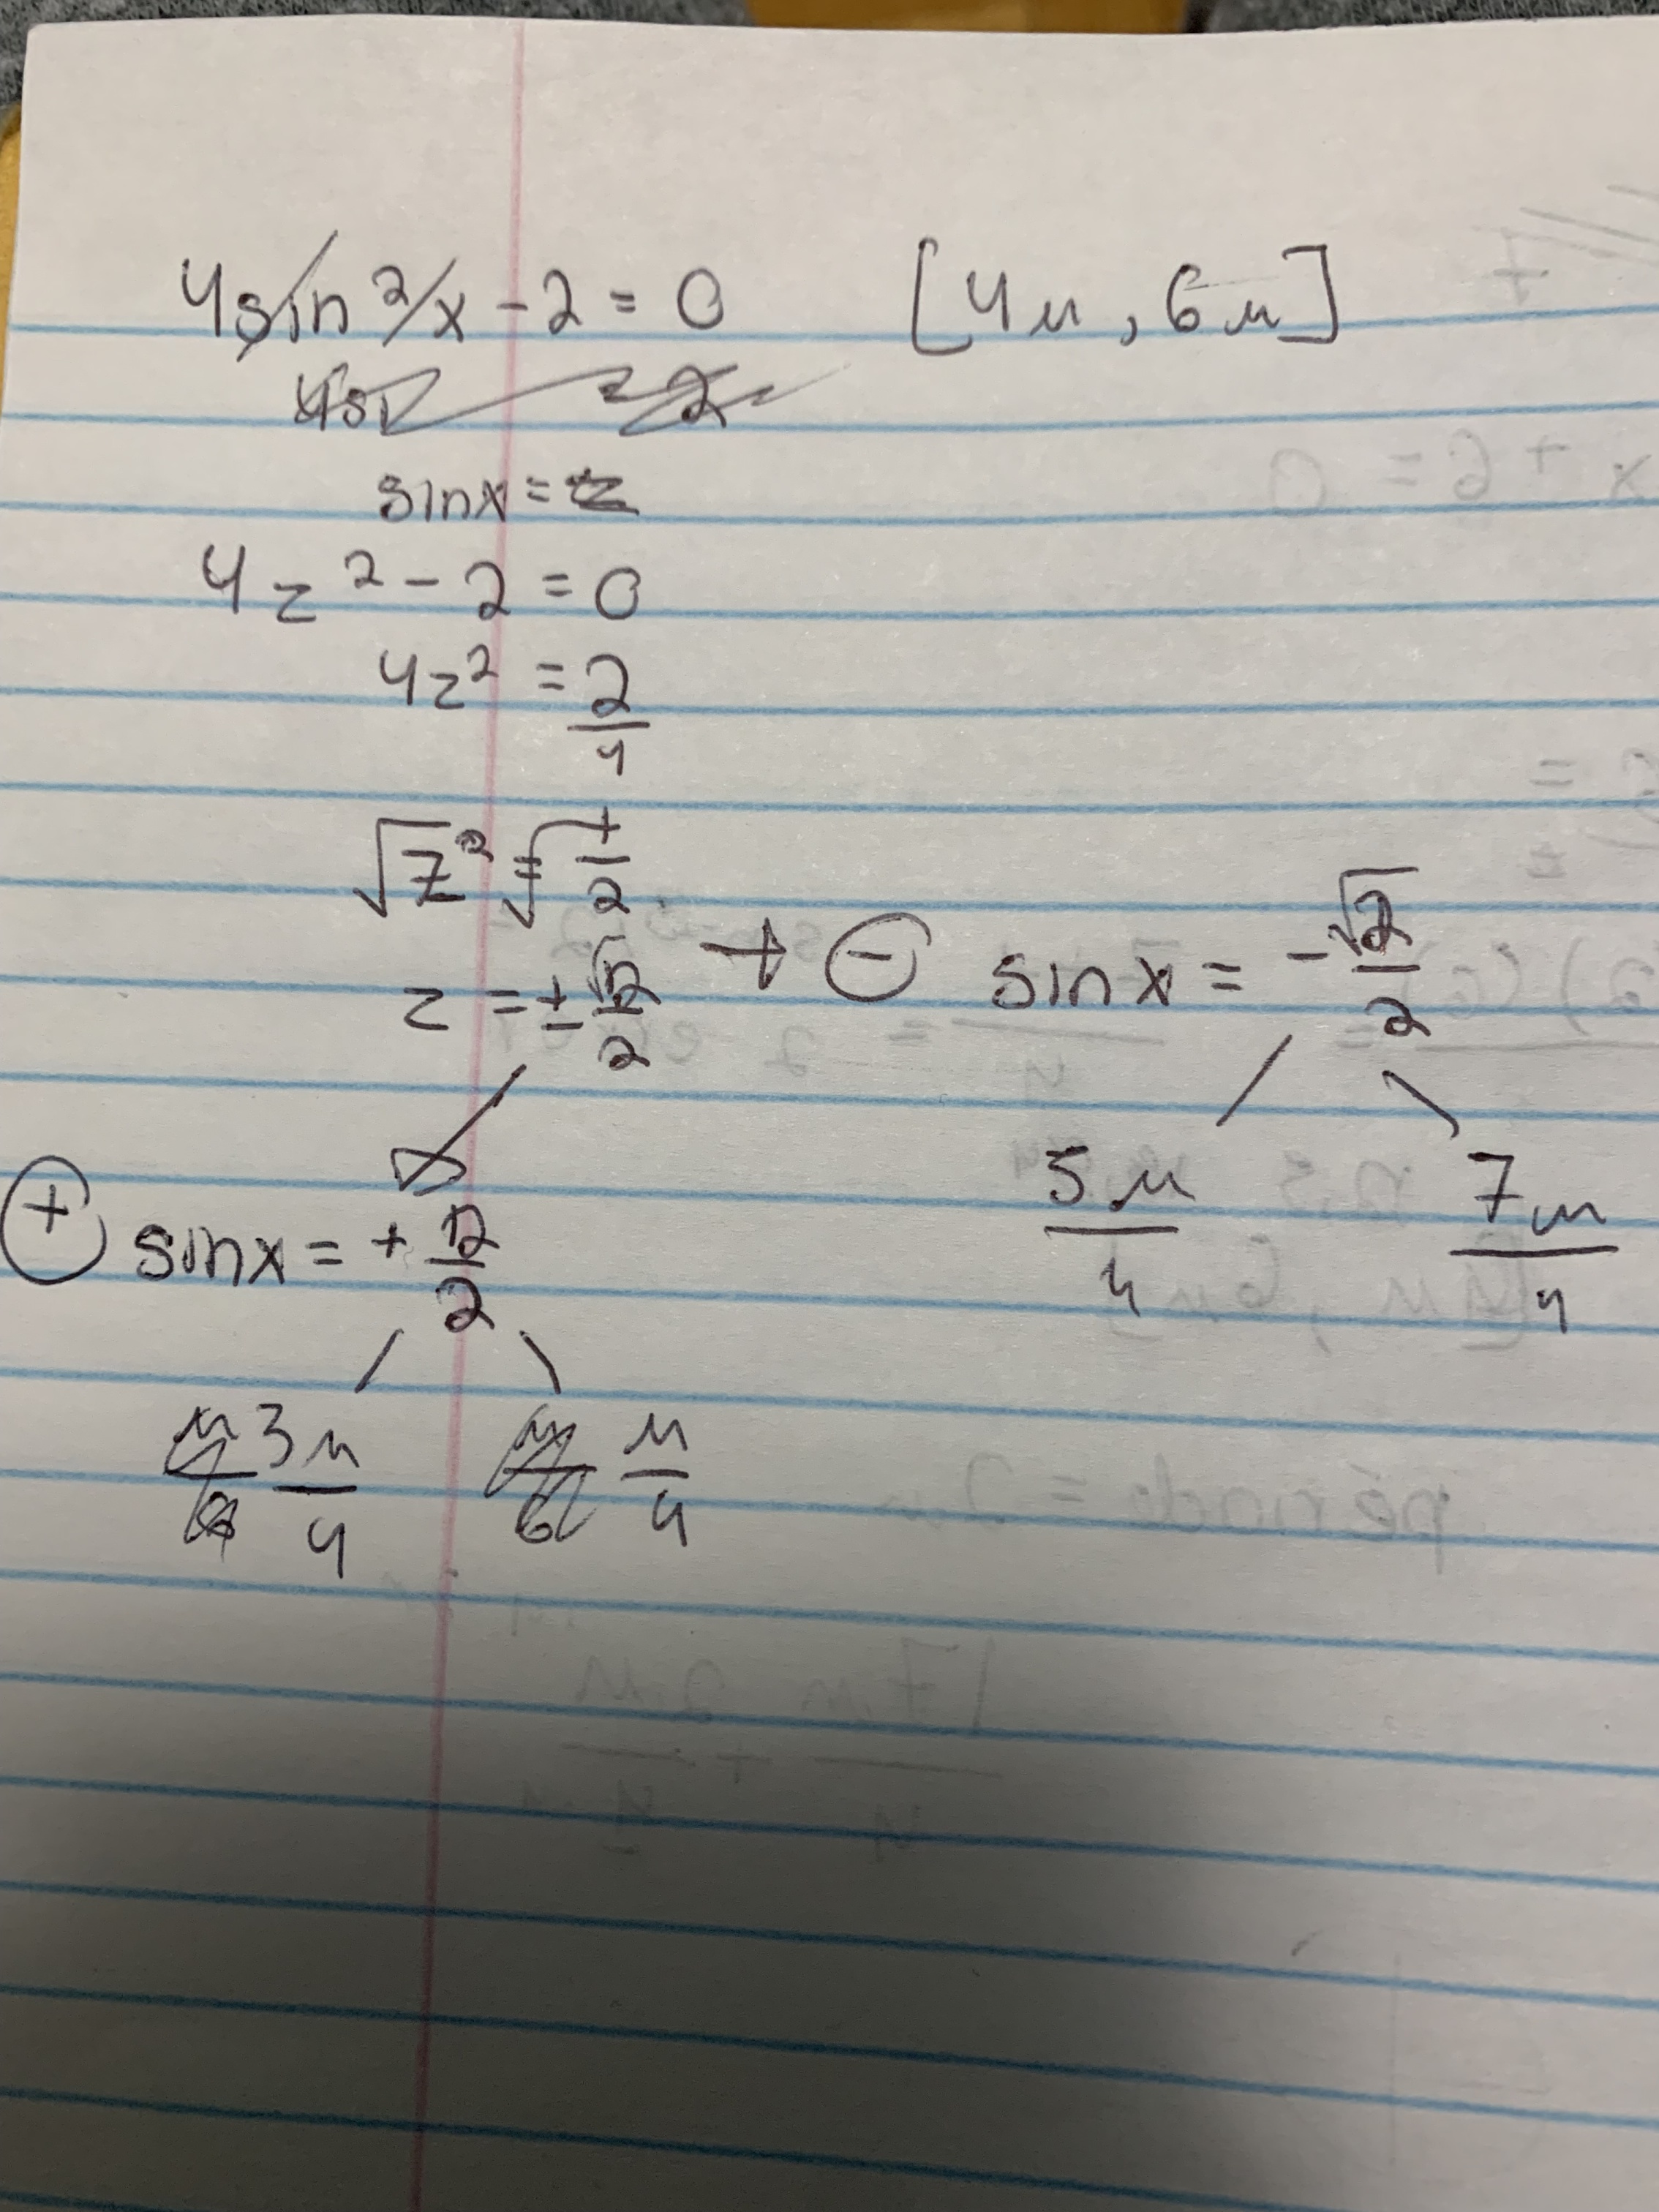 4sin²x - 2 = 0 [4π, 6π]
sinx = z
4z² - 2 = 0
4z² = 2/4
√z² = √1/2
z = ± √2/2 → ⊖ sinx = -√2/2
5π/4 7π/4
⊕ sinx = + √2/2
3π/4 π/4